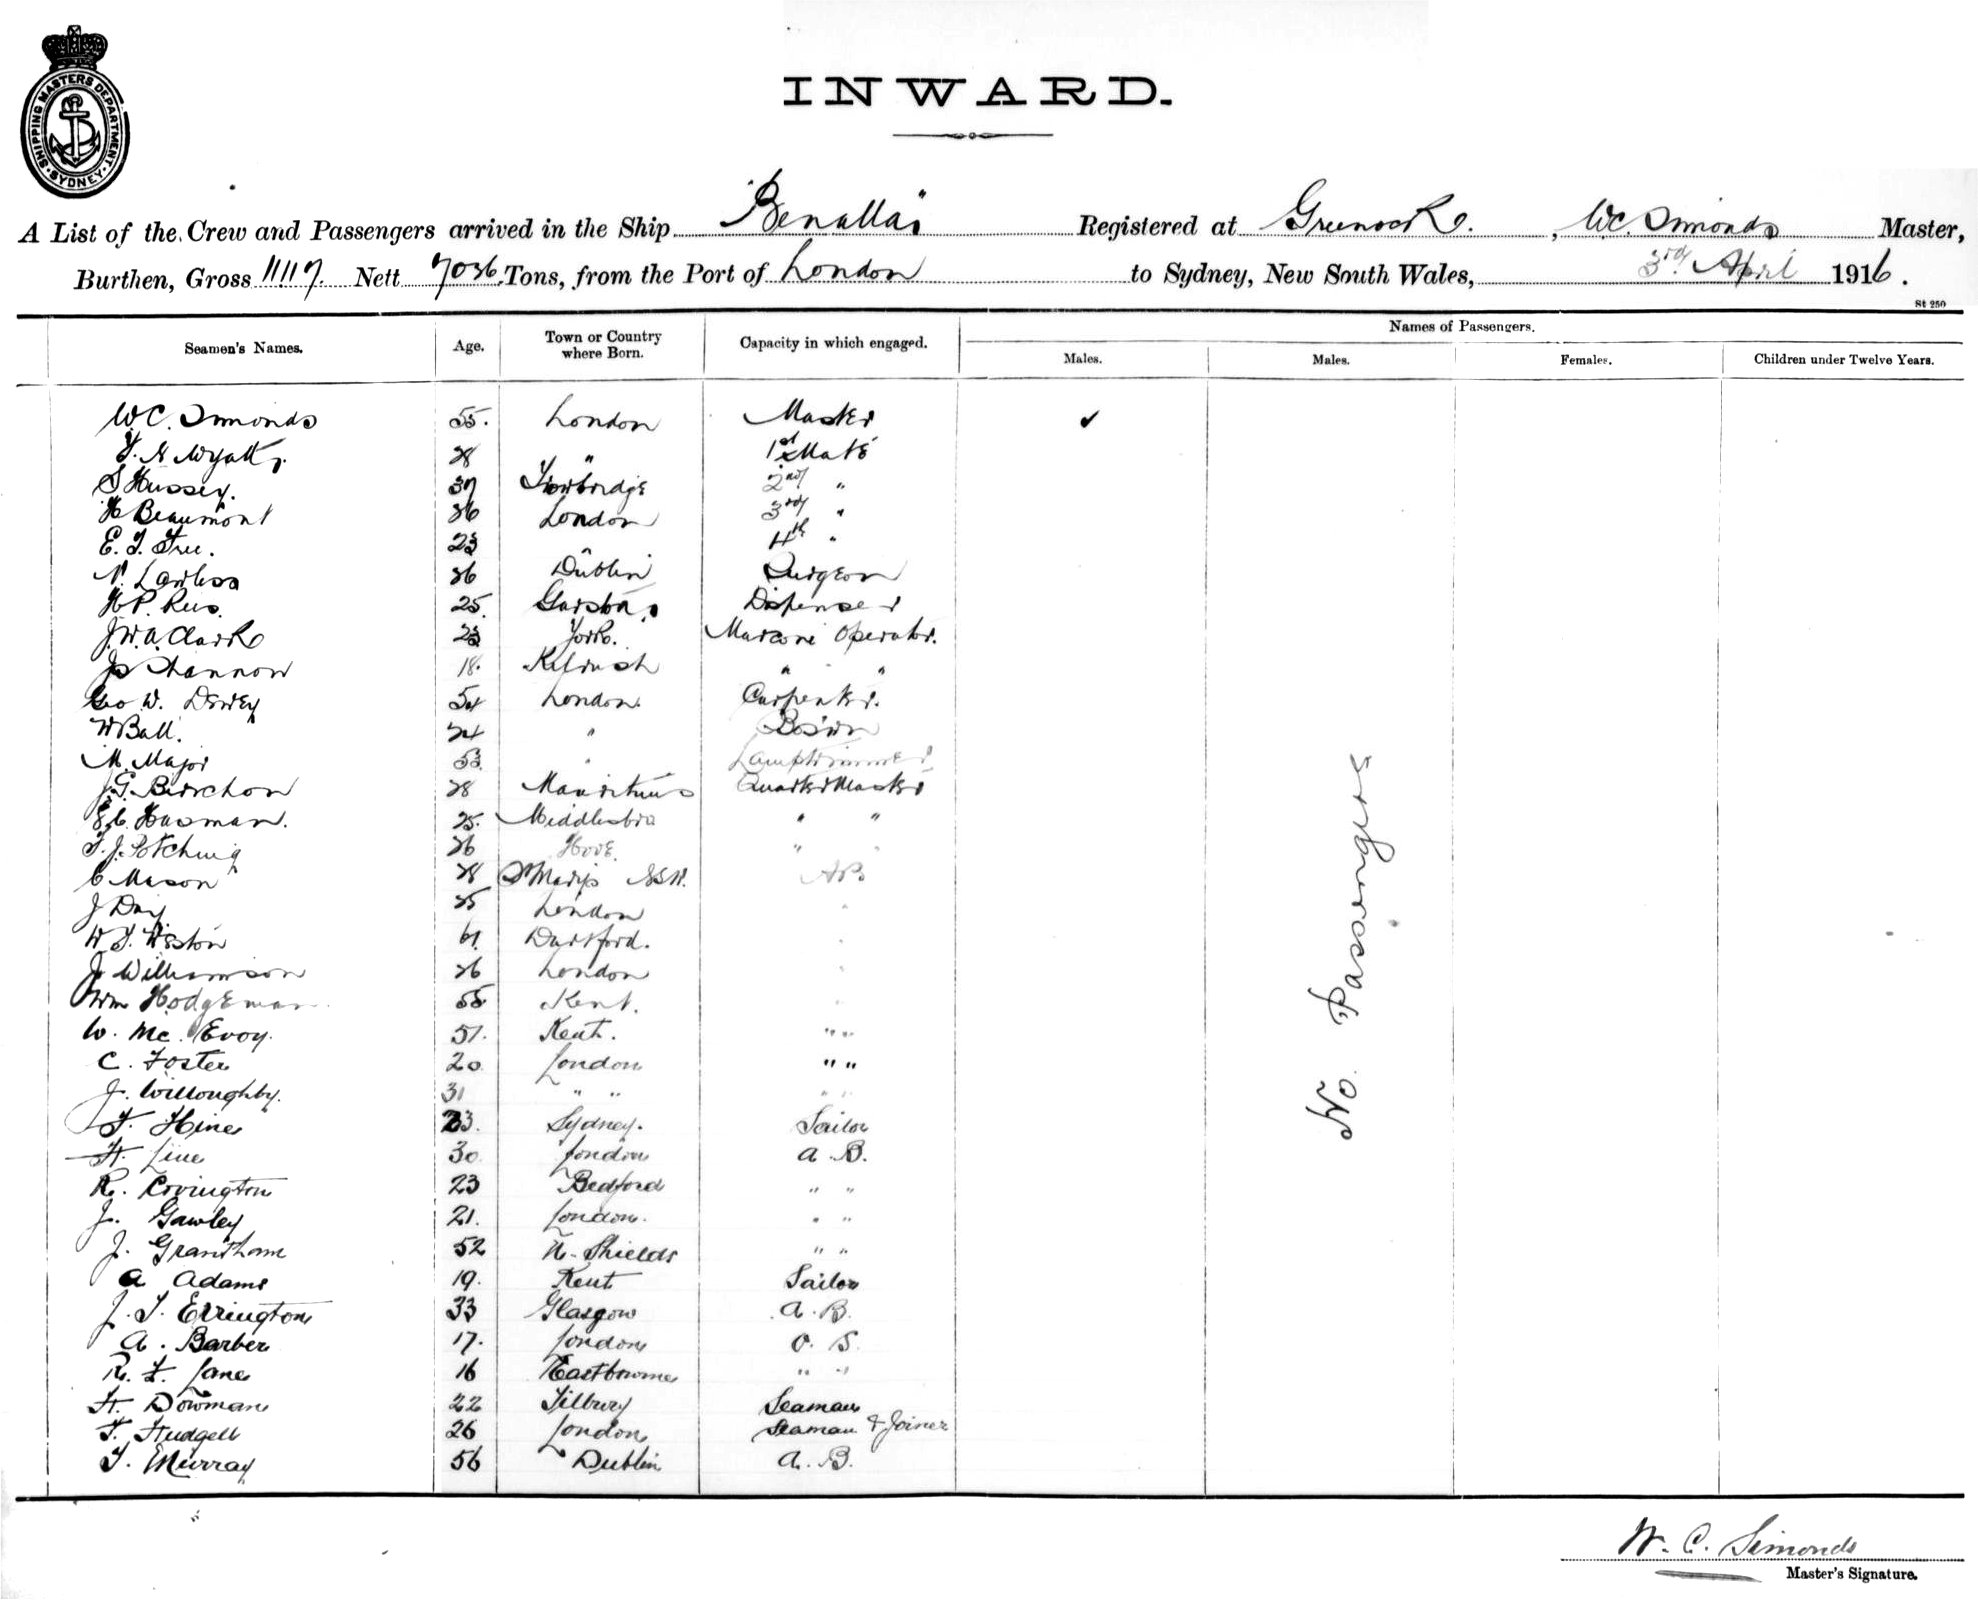 SHIPPING MASTERS DEPARTMENT
SYDNEY
INWARD.
A List of the Crew and Passengers arrived in the Ship "Benalla" Registered at Greenock. , W.C. Simonds Master,
Burthen, Gross 11117. Nett 7036 Tons, from the Port of London to Sydney, New South Wales, 3rd April 1916.
St 250
Seamen's Names. Age. Town or Country where Born. Capacity in which engaged. Names of Passengers.
Males. Males. Females. Children under Twelve Years.
W.C. Simonds 55. London Master ✓
Wyatt 28 " 1st Mate
S Hussey. 37 Trowbridge 2nd "
H Beaumont 36 London 3rd "
E. J. Free. 23 " 4th "
N. Lawless 36 Dublin Surgeon
H P. Rees 25 Dispenser
J.W.A. Clark 23 York. Marconi Operator.
J Shannon 18. Kilrush " "
Geo W. Dewey 54 London. Carpenter.
W Ball. 24 " Bos'n
M. Major 53 " Lamptrimmer
J.G. 28 Mauritius QuarterMaster
Hasman. 25. Middlesbro " "
26 Hove. " "
C Mason 28 St Marys NSW. AB
J Day 25 London "
W J. Weston 61. Dartford. "
J Williamson 26 London "
Wm Hodgeman 55 Kent. "
W. Mc.Evoy. 51. Kent. " "
C. Foster 20 London " "
J. Willoughby. 31 " " " "
F. Hines 33. Sydney. Sailor
H. Line 30 London A. B.
R. Covington 23 Bedford " "
J. Gawley 21. London. " "
J. Grantham 52 N. Shields " "
A Adams 19. Kent Sailor
J. T. Errington 33 Glasgow A. B.
A. Barber 17. London O. S.
R. F. Lane 16 Eastbourne " "
H. Dowman 22 Tilbury Seaman
F. Hudgell 26 London Seaman & Joiner
T. Murray 56 Dublin A. B.
No Passengers
W. C. Simonds
Master's Signature.